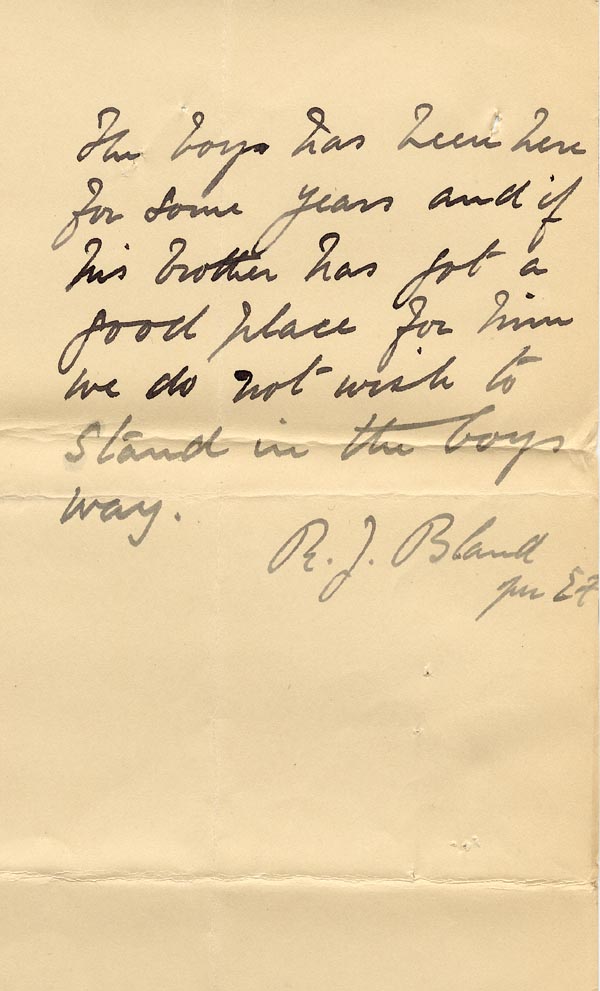 The boys has been here
for some years and if
his brother has got a
good place for him
we do not wish to
stand in the boys
way.
R. J. Bland
per EF